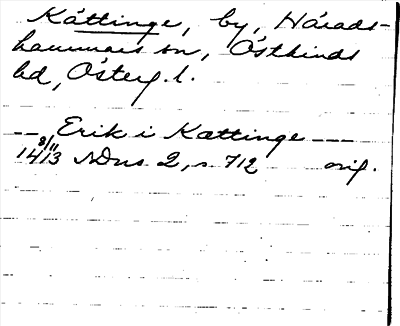 Kättinge, by, Härads-
hammars sn, Östkinds
hd, Österg. l.
-- Erik i Kættinge ---
14 8/11 13 SDns 2, s. 712 orig.